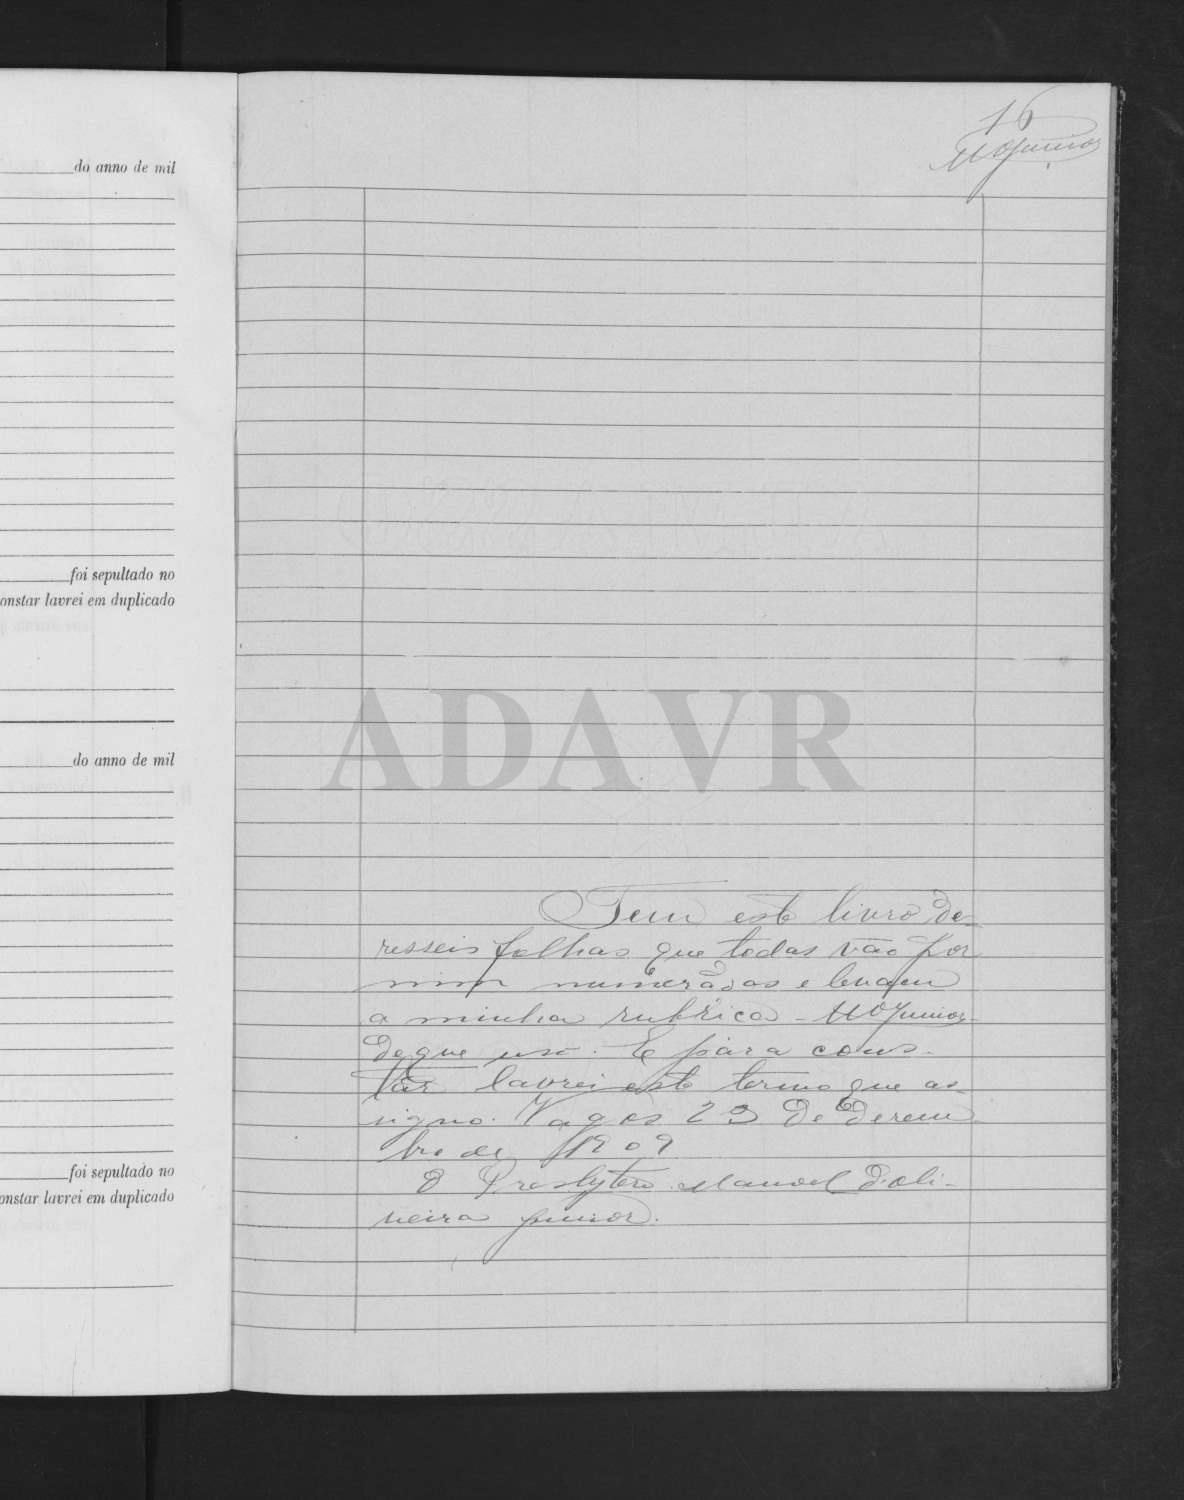 do anno de mil
foi sepultado no
onstar lavrei em duplicado
do anno de mil
foi sepultado no
onstar lavrei em duplicado
16
MOJunior
ADAVR
Tem este livro de-
resseis folhas que todas vão por
mim numeradas e levam
a minha rubrica - MOJunior -
de que uso. E para cons-
tar lavrei este termo que as-
signo. Vagos 23 de Dezem-
bro de 1909
O Presbytero Manoel d'Oli-
veira Junior.